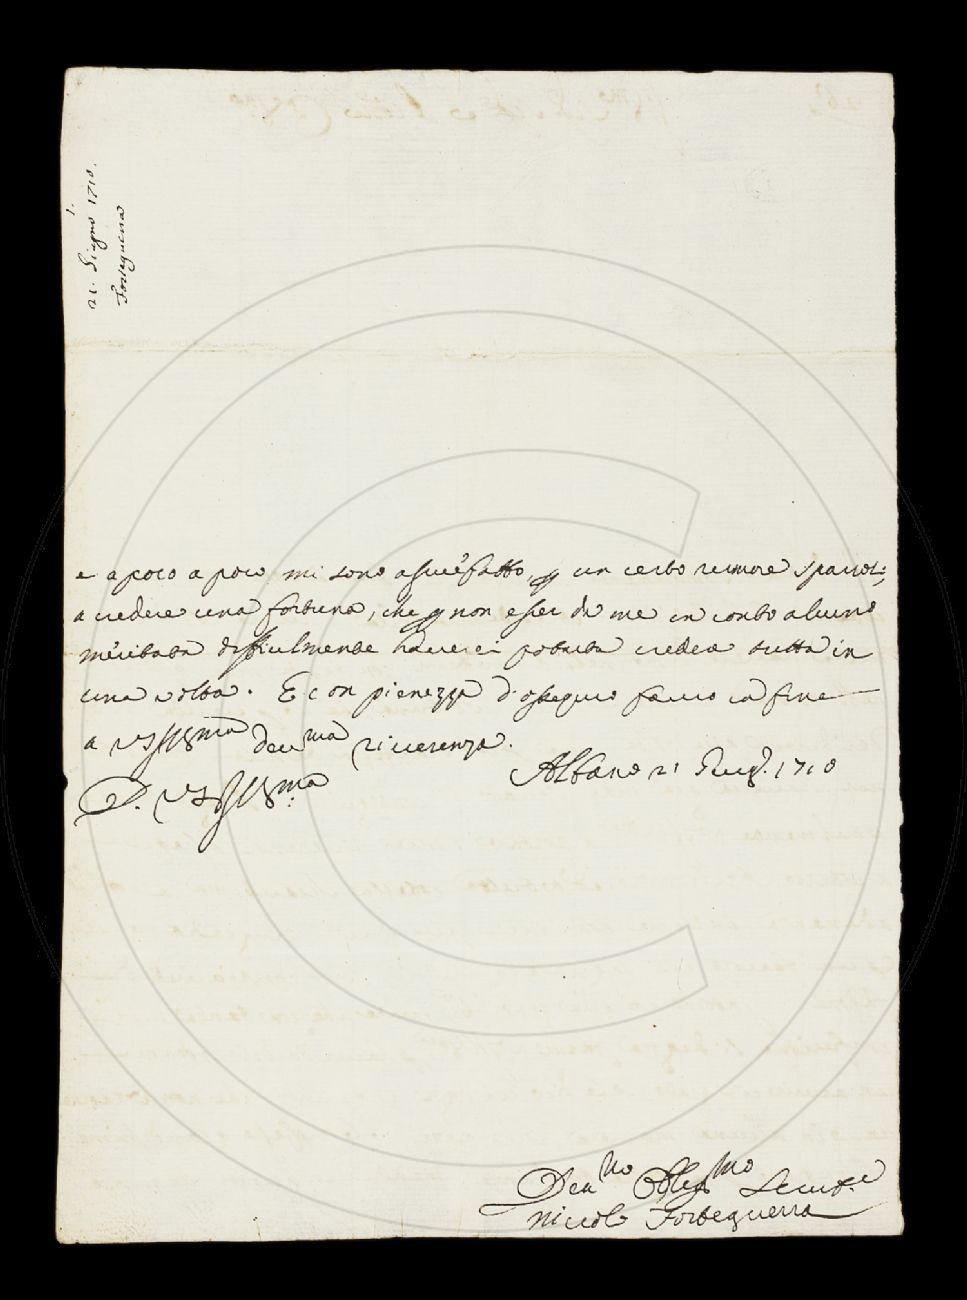 1.
21. Giugno 1710.
Forteguerra
e a poco a poco mi sono assuefatto, ꝑ un certo rumore sparsosi,
a credere una fortuna, che ꝑ non esser da me in conto alcuno
meritata difficilmente haverei potuta creder tutta in
una volta. E con pienezza d'ossequio faccio in fine
a VS Illma devma riverenza.
D. VS Illma
Albano 21 Giug. 1710
Devmo Obbligmo Servre
Niccolò Forteguerra